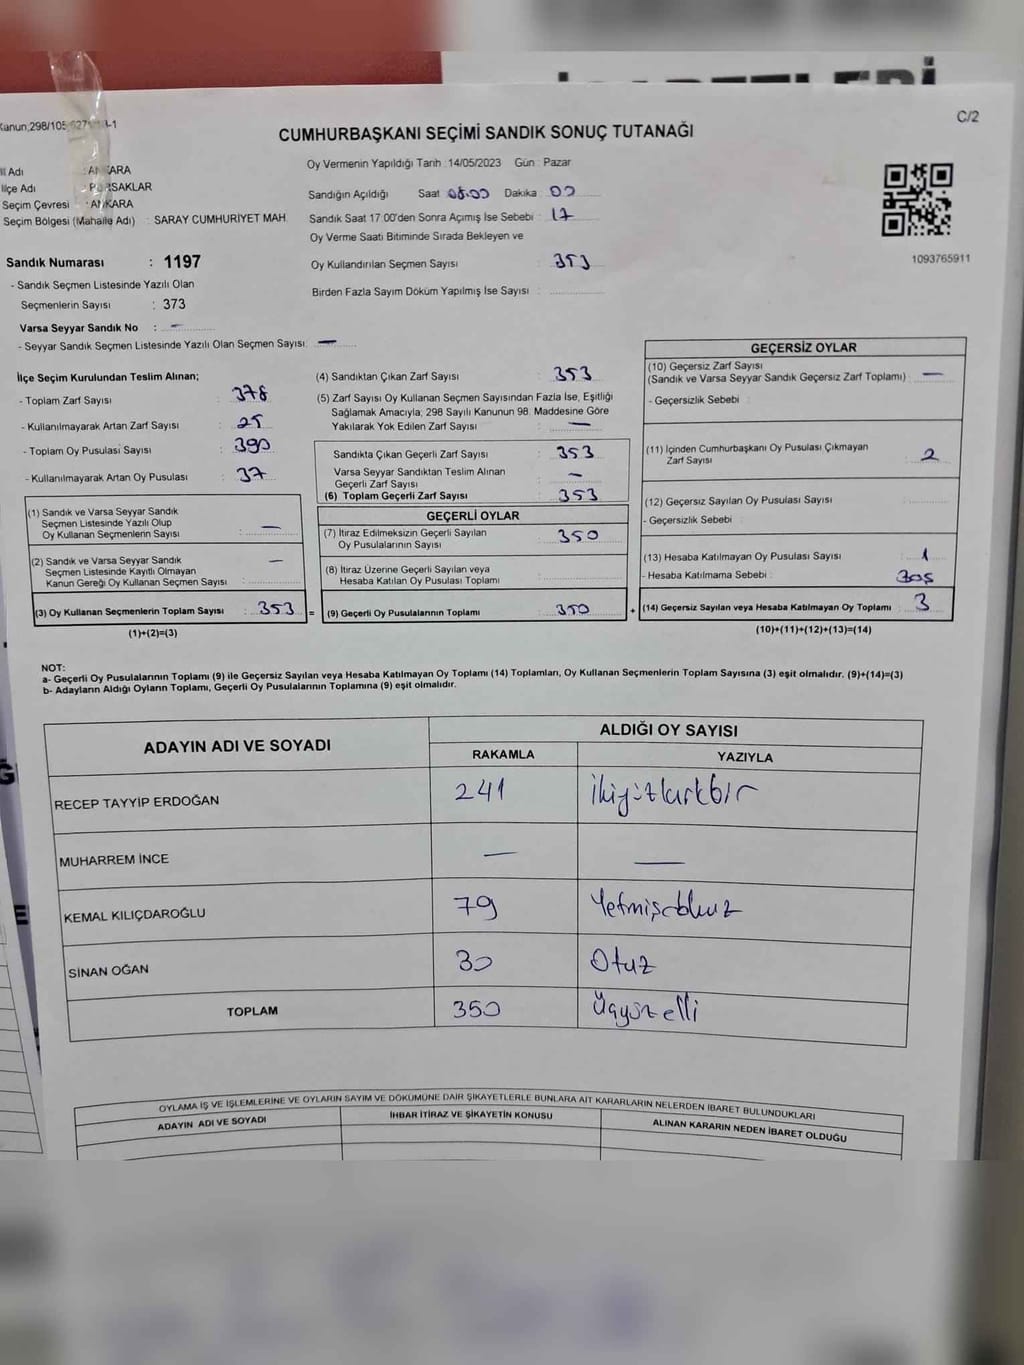 C/2
CUMHURBAŞKANI SEÇİMİ SANDIK SONUÇ TUTANAĞI
İl Adı : ANKARA
İlçe Adı : PURSAKLAR
Seçim Çevresi : ANKARA
Seçim Bölgesi (Mahalle Adı) : SARAY CUMHURİYET MAH.
Oy Vermenin Yapıldığı Tarih : 14/05/2023 Gün : Pazar
Sandığın Açıldığı Saat 08:00 Dakika : 00
Sandık Saat 17:00'den Sonra Açımış İse Sebebi : 17
Oy Verme Saati Bitiminde Sırada Bekleyen ve
Oy Kullandırılan Seçmen Sayısı : 353
Birden Fazla Sayım Döküm Yapılmış İse Sayısı :
1093765911
Sandık Numarası : 1197
- Sandık Seçmen Listesinde Yazılı Olan
Seçmenlerin Sayısı : 373
Varsa Seyyar Sandık No : —
- Seyyar Sandık Seçmen Listesinde Yazılı Olan Seçmen Sayısı: —
İlçe Seçim Kurulundan Teslim Alınan;
- Toplam Zarf Sayısı : 378
- Kullanılmayarak Artan Zarf Sayısı : 25
- Toplam Oy Pusulası Sayısı : 390
- Kullanılmayarak Artan Oy Pusulası : 37
(1) Sandık ve Varsa Seyyar Sandık
Seçmen Listesinde Yazılı Olup
Oy Kullanan Seçmenlerin Sayısı : —
(2) Sandık ve Varsa Seyyar Sandık
Seçmen Listesinde Kayıtlı Olmayan
Kanun Gereği Oy Kullanan Seçmen Sayısı : —
(3) Oy Kullanan Seçmenlerin Toplam Sayısı : 353 =
(1)+(2)=(3)
(4) Sandıktan Çıkan Zarf Sayısı : 353
(5) Zarf Sayısı Oy Kullanan Seçmen Sayısından Fazla İse, Eşitliği
Sağlamak Amacıyla; 298 Sayılı Kanunun 98. Maddesine Göre
Yakılarak Yok Edilen Zarf Sayısı : —
Sandıkta Çıkan Geçerli Zarf Sayısı : 353
Varsa Seyyar Sandıktan Teslim Alınan
Geçerli Zarf Sayısı : —
(6) Toplam Geçerli Zarf Sayısı : 353
GEÇERLİ OYLAR
(7) İtiraz Edilmeksizin Geçerli Sayılan
Oy Pusulalarının Sayısı : 350
(8) İtiraz Üzerine Geçerli Sayılan veya
Hesaba Katılan Oy Pusulası Toplamı :
(9) Geçerli Oy Pusulalarının Toplamı : 350 +
GEÇERSİZ OYLAR
(10) Geçersiz Zarf Sayısı
(Sandık ve Varsa Seyyar Sandık Geçersiz Zarf Toplamı) : —
- Geçersizlik Sebebi :
(11) İçinden Cumhurbaşkanı Oy Pusulası Çıkmayan
Zarf Sayısı : 2
(12) Geçersiz Sayılan Oy Pusulası Sayısı :
- Geçersizlik Sebebi :
(13) Hesaba Katılmayan Oy Pusulası Sayısı : 1
- Hesaba Katılmama Sebebi :
(14) Geçersiz Sayılan veya Hesaba Katılmayan Oy Toplamı : 3
(10)+(11)+(12)+(13)=(14)
NOT:
a- Geçerli Oy Pusulalarının Toplamı (9) ile Geçersiz Sayılan veya Hesaba Katılmayan Oy Toplamı (14) Toplamları, Oy Kullanan Seçmenlerin Toplam Sayısına (3) eşit olmalıdır. (9)+(14)=(3)
b- Adayların Aldığı Oyların Toplamı, Geçerli Oy Pusulalarının Toplamına (9) eşit olmalıdır.
ADAYIN ADI VE SOYADI
ALDIĞI OY SAYISI
RAKAMLA YAZIYLA
RECEP TAYYİP ERDOĞAN 241 ikiyüzkırkbir
MUHARREM İNCE — —
KEMAL KILIÇDAROĞLU 79 Yetmişdokuz
SİNAN OĞAN 30 Otuz
TOPLAM 350 Üçyüz elli
OYLAMA İŞ VE İŞLEMLERİNE VE OYLARIN SAYIM VE DÖKÜMÜNE DAİR ŞİKAYETLERLE BUNLARA AİT KARARLARIN NELERDEN İBARET BULUNDUKLARI
ADAYIN ADI VE SOYADI
İHBAR İTİRAZ VE ŞİKAYETİN KONUSU
ALINAN KARARIN NEDEN İBARET OLDUĞU